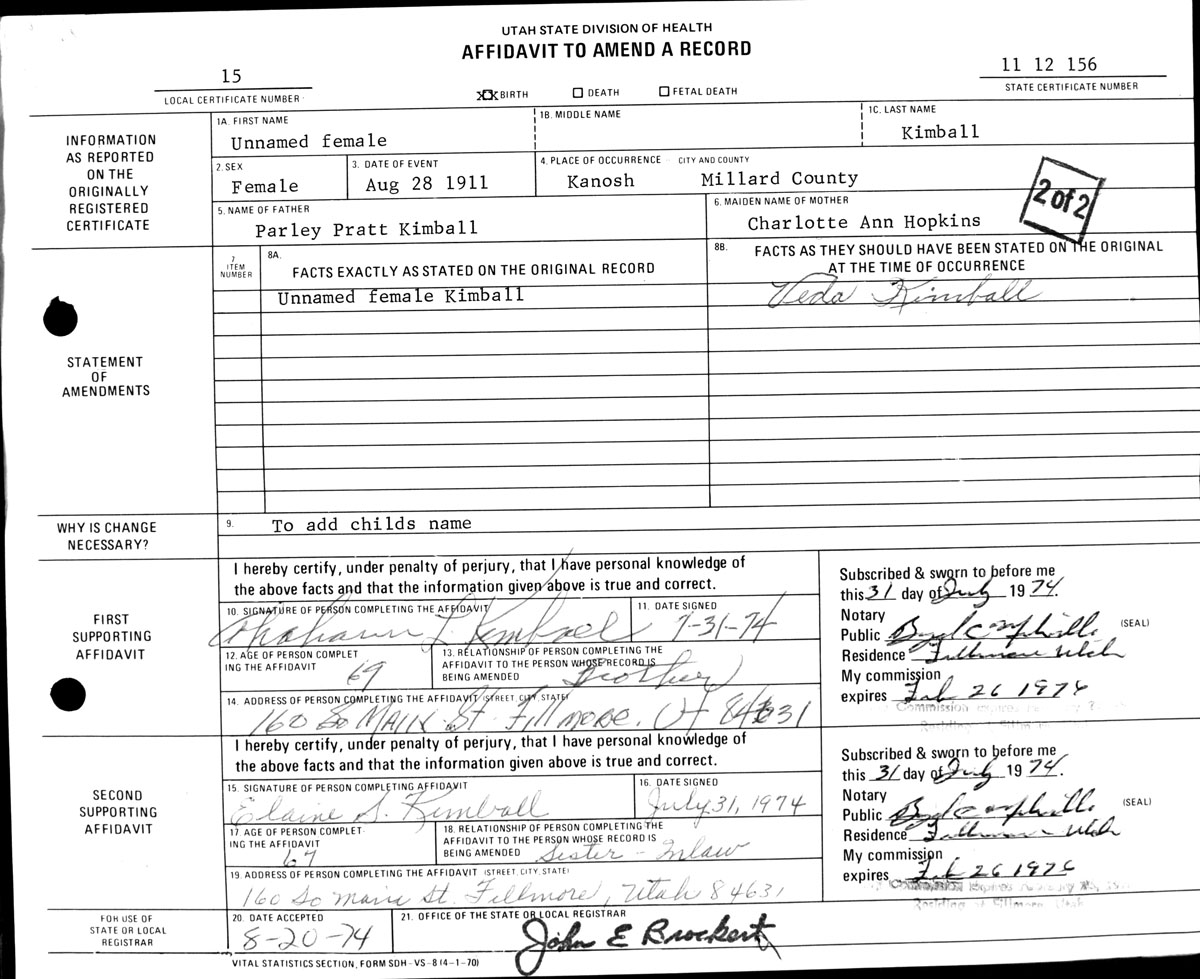 UTAH STATE DIVISION OF HEALTH
AFFIDAVIT TO AMEND A RECORD
15
LOCAL CERTIFICATE NUMBER
XX BIRTH DEATH FETAL DEATH
11 12 156
STATE CERTIFICATE NUMBER
INFORMATION
AS REPORTED
ON THE
ORIGINALLY
REGISTERED
CERTIFICATE
1A. FIRST NAME
Unnamed female
1B. MIDDLE NAME
1C. LAST NAME
Kimball
2. SEX
Female
3. DATE OF EVENT
Aug 28 1911
4. PLACE OF OCCURRENCE CITY AND COUNTY
Kanosh Millard County
5. NAME OF FATHER
Parley Pratt Kimball
6. MAIDEN NAME OF MOTHER
Charlotte Ann Hopkins
2 of 2
STATEMENT
OF
AMENDMENTS
7
ITEM
NUMBER
8A.
FACTS EXACTLY AS STATED ON THE ORIGINAL RECORD
Unnamed female Kimball
8B. FACTS AS THEY SHOULD HAVE BEEN STATED ON THE ORIGINAL
AT THE TIME OF OCCURRENCE
Veda Kimball
WHY IS CHANGE
NECESSARY?
9. To add childs name
FIRST
SUPPORTING
AFFIDAVIT
I hereby certify, under penalty of perjury, that I have personal knowledge of
the above facts and that the information given above is true and correct.
10. SIGNATURE OF PERSON COMPLETING THE AFFIDAVIT
L Kimball
11. DATE SIGNED
7-31-74
12. AGE OF PERSON COMPLET
ING THE AFFIDAVIT
69
13. RELATIONSHIP OF PERSON COMPLETING THE
AFFIDAVIT TO THE PERSON WHOSE RECORD IS
BEING AMENDED Brother
14. ADDRESS OF PERSON COMPLETING THE AFFIDAVIT (STREET, CITY, STATE)
160 So Main St. Fillmore, Ut 84631
Subscribed & sworn to before me
this 31 day of July 1974.
Notary
Public (SEAL)
Residence Fillmore Utah
My commission
expires Feb 26 1976
Commission expires
Residing at Fillmore
SECOND
SUPPORTING
AFFIDAVIT
I hereby certify, under penalty of perjury, that I have personal knowledge of
the above facts and that the information given above is true and correct.
15. SIGNATURE OF PERSON COMPLETING AFFIDAVIT
Elaine S. Kimball
16. DATE SIGNED
July 31, 1974
17. AGE OF PERSON COMPLET
ING THE AFFIDAVIT
67
18. RELATIONSHIP OF PERSON COMPLETING THE
AFFIDAVIT TO THE PERSON WHOSE RECORD IS
BEING AMENDED Sister - Inlaw
19. ADDRESS OF PERSON COMPLETING THE AFFIDAVIT (STREET, CITY, STATE)
160 So main St. Fillmore, Utah 84631
Subscribed & sworn to before me
this 31 day of July 1974.
Notary
Public (SEAL)
Residence Fillmore Utah
My commission
expires Feb 26 1976
Commission Expires
Residing at Fillmore Utah
FOR USE OF
STATE OR LOCAL
REGISTRAR
20. DATE ACCEPTED
8-20-74
21. OFFICE OF THE STATE OR LOCAL REGISTRAR
John E Brockert
VITAL STATISTICS SECTION, FORM SDH-VS-8 (4-1-70)